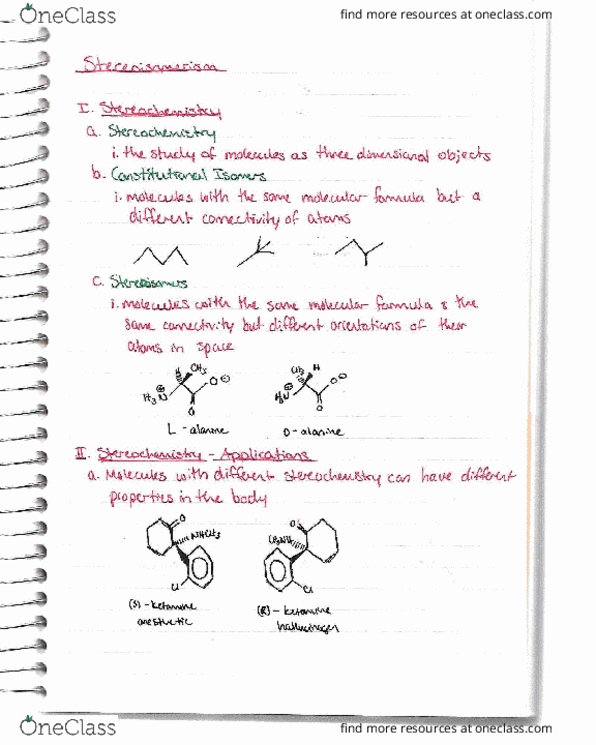 OneClass
find more resources at oneclass.com
Stereoisomerism
I. Stereochemistry
a. Stereochemistry
i. the study of molecules as three dimensional objects
b. Constitutional Isomers
i. molecules with the same molecular formula but a
different connectivity of atoms
c. Stereoisomers
i. molecules with the same molecular formula & the
same connectivity but different orientations of their
atoms in space
H CH3 CH3 H
H3N ⊕ O ⊖ H3N ⊕ O ⊖
O O
L - alanine D - alanine
II. Stereochemistry - Applications
a. Molecules with different stereochemistry can have different
properties in the body
O O
NHCH3
Cl Cl
(S) - ketamine (R) - ketamine
anesthetic hallucinogen
OneClass
find more resources at oneclass.com